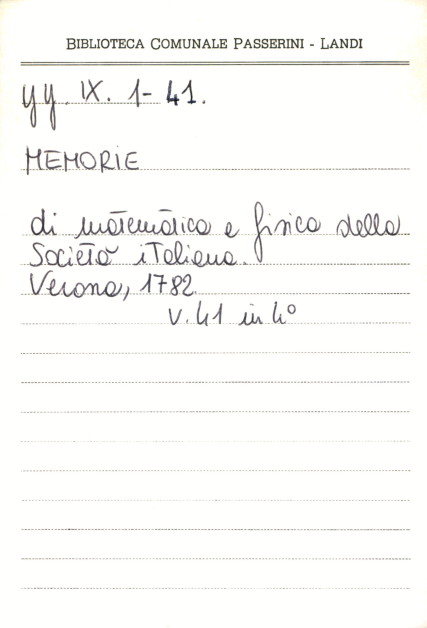 BIBLIOTECA COMUNALE PASSERINI - LANDI
yy. IX. 1-41.
MEMORIE
di matematica e fisica della
Società italiana.
Verona, 1782.
v. 41 in 4°